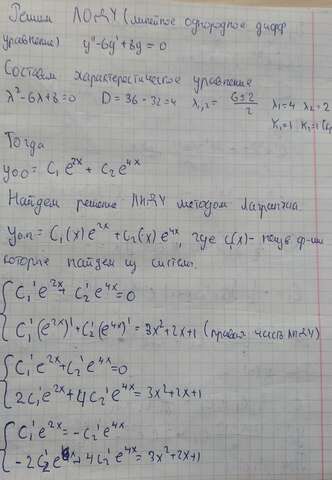 Решим ЛОДУ (линейное однородное дифф
уравнение) y'' - 6y' + 8y = 0
Составим характеристическое уравнение
λ² - 6λ + 8 = 0 D = 36 - 32 = 4 λ₁,₂ = (6±2)/2 λ₁ = 4 λ₂ = 2
K₁ = 1
Тогда
y₀.₀ = C₁ e^{2x} + C₂ e^{4x}
Найдем решение ЛНДУ методом Лагранжа
y₀.н = C₁(x) e^{2x} + C₂(x) e^{4x}, где C(x) -
которые найдем из систем.
C₁' e^{2x} + C₂' e^{4x} = 0
C₁' (e^{2x})' + C₂' (e^{4x})' = 3x² + 2x + 1 (правая часть ЛНДУ)
C₁' e^{2x} + C₂' e^{4x} = 0
2C₁' e^{2x} + 4C₂' e^{4x} = 3x² + 2x + 1
C₁' e^{2x} = -C₂' e^{4x}
-2C₂' e^{4x} + 4C₂' e^{4x} = 3x² + 2x + 1